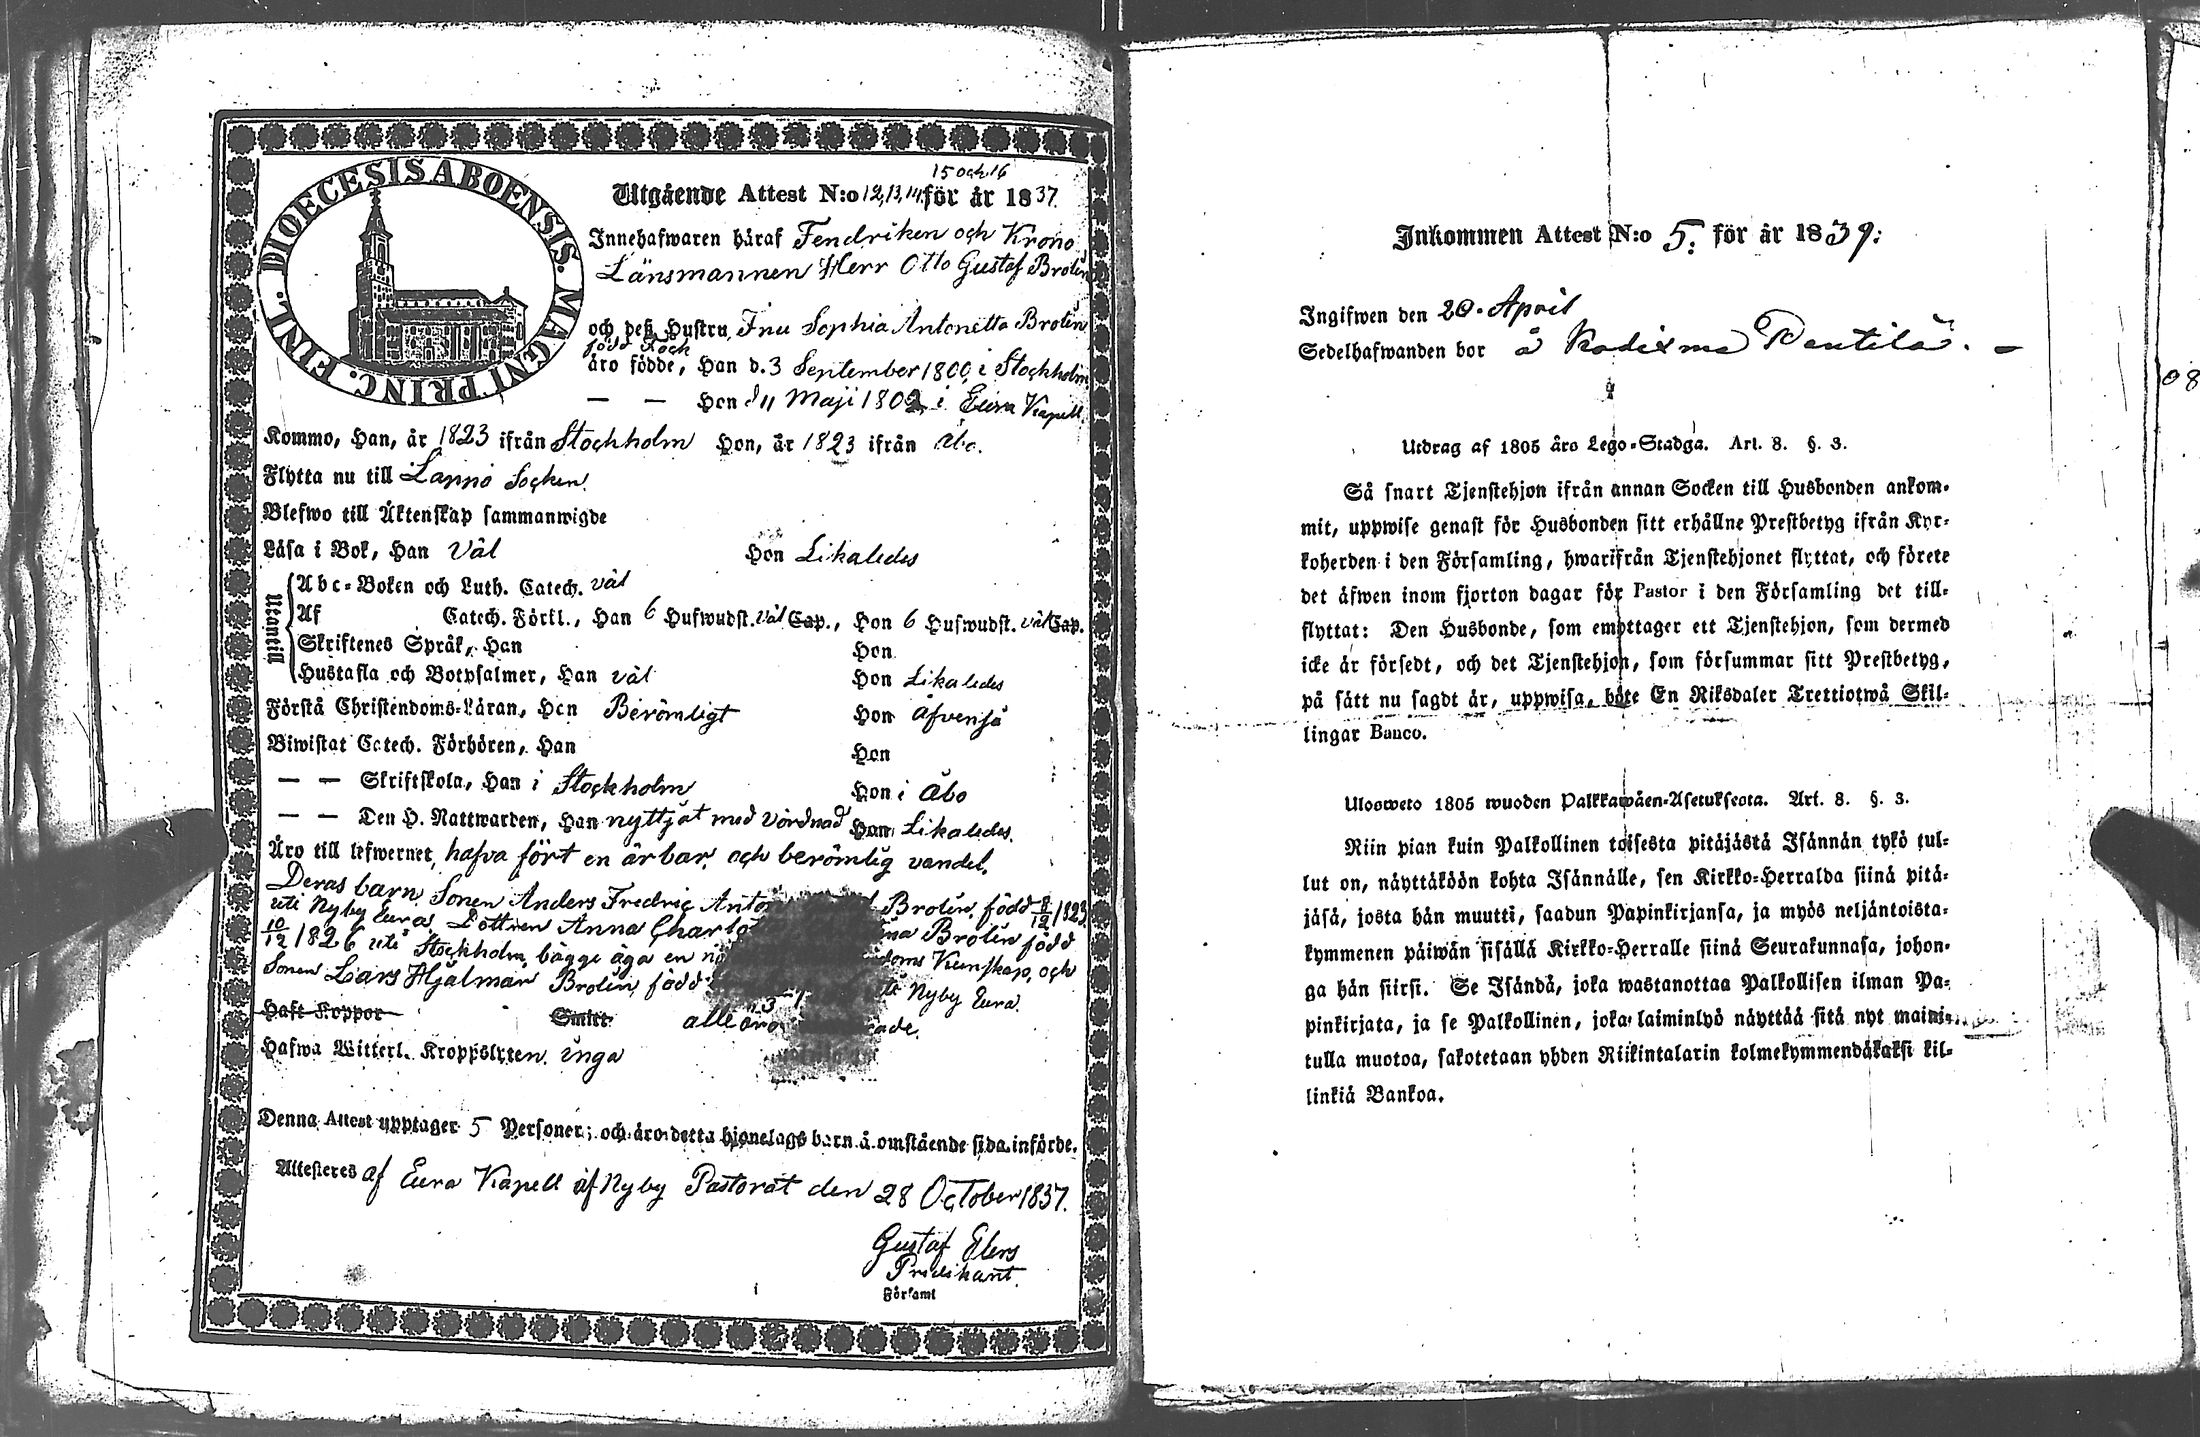 DIOECESIS ABOENSIS. MAGNI PRINC. FINL.
15 och 16
Utgående Attest N:o 12,13,14, för år 1837.
Innehafwaren häraf Fendriken och Krono
Länsmannen Herr Otto Gustaf Brolin
och deß Hustru, Fru Sophia Antonetta Brolin
född Fock
äro födde, Han d. 3 September 1800 i Stockholm
— — Hon d 11 Maji 1802 i Eura Kapell
Kommo, Han, år 1823 ifrån Stockholm Hon, år 1823 ifrån Åbo.
Flytta nu till Lappo Socken.
Blefwo till Äktenskap sammanwigde
Läsa i Bok, Han Väl Hon Likaledes
Utantill
Abc-Boken och Luth. Catech. väl
Af Catech. Förkl., Han 6 Hufwudst. väl Cap., Hon 6 Hufwudst. väl Cap.
Skriftenes Språk, Han Hon
Hustafla och Botpsalmer, Han väl Hon Likaledes
Förstå Christendoms-Läran, Hen Berömligt Hon äfvenså
Biwistat Catech. Förhören, Han Hon
— — Skriftskola, Han i Stockholm Hon i Åbo
— — Den H. Nattwarden, Han nyttjat med vördnad Hon Likaledes.
Äro till lefwernet, hafva fört en ärbar, och berömlig vandel.
Deras barn, Sonen Anders Fredric Brolin, född 8/12 1823
uti Nyby Eura, Dottren Anna Brolin född
10/12 1826 uti Stockholm, bägge äga en Kunskap, och
Sonen Lars Hjalmar Brolin, född Nyby Eura.
Haft Koppor Smitt alle äro
Hafwa Witterl. Kroppslyten, inga
Denna Attest upptager 5 Personer; och äro detta hjonelags barn å omstående sida införde.
Attesteres af Eura Kapell af Nyby Pastorat den 28 October 1837.
Gustaf Elers
Predikant.
Församl
Inkommen Attest N:o 5. för år 1839:
Ingifwen den 20. April
Sedelhafwanden bor å
Utdrag af 1805 års Lego-Stadga. Art. 8. §. 3.
Så snart Tjenstehjon ifrån annan Socken till Husbonden ankom-
mit, uppwise genast för Husbonden sitt erhållne Prestbetyg ifrån Kyr-
koherden i den Församling, hwarifrån Tjenstehjonet flyttat, och förete
det äfwen inom fjorton dagar för Pastor i den Församling det till-
flyttat: Den Husbonde, som emottager ett Tjenstehjon, som dermed
icke är försedt, och det Tjenstehjon, som försummar sitt Prestbetyg,
på sätt nu sagdt är, uppwisa, böte En Riksdaler Trettiotwå Skil-
lingar Banco.
Ulosweto 1805 wuoden Palkkawäen-Asetuksesta. Art. 8. §. 3.
Niin pian kuin Palkollinen toisesta pitäjästä Isännän tykö tul-
lut on, näyttäköön kohta Isännälle, sen Kirkko-Herralda siinä pitä-
jäsä, josta hän muutti, saadun Papinkirjansa, ja myös neljäntoista-
kymmenen päiwän sisällä Kirkko-Herralle siinä Seurakunnasa, johon-
ga hän siirsi. Se Isändä, joka wastanottaa Palkollisen ilman Pa-
pinkirjata, ja se Palkollinen, joka laiminlyö näyttää sitä nyt mainit-
tulla muotoa, sakotetaan yhden Riikintalarin kolmekymmendäkaksi kil-
linkiä Bankoa.